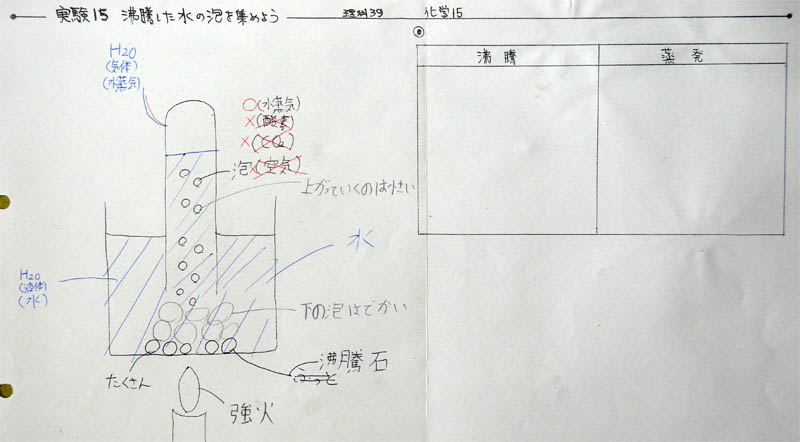 実験15 沸騰した水の泡を集めよう
理科39
化学15
H2O
(気体)
(水蒸気)
○(水蒸気)
×(酸素)
×(CO2)
泡×(空気)
上がっていくのは小さい
水
H2O
(液体)
(水)
下の泡はでかい
沸騰石
たくさん
強火
沸騰
蒸発